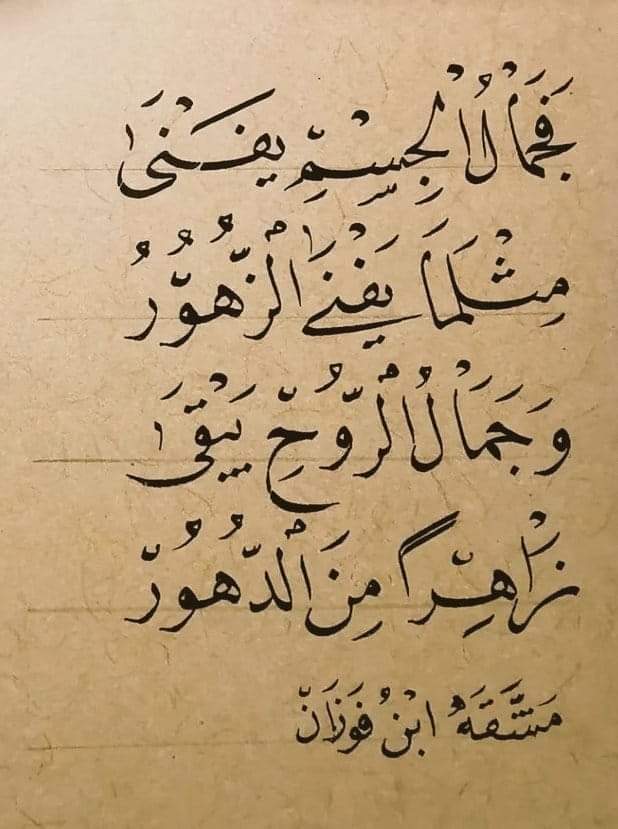 فَجَمَالُ الْجِسْمِ يَفْنَى
مِثْلَمَا يَفْنَى الزُّهُورُ
وَجَمَالُ الرُّوحِ يَبْقَى
زَاهِرًا مِنَ الدُّهُورِ
مَشَّقَهُ ابْنُ فَوْزَانَ